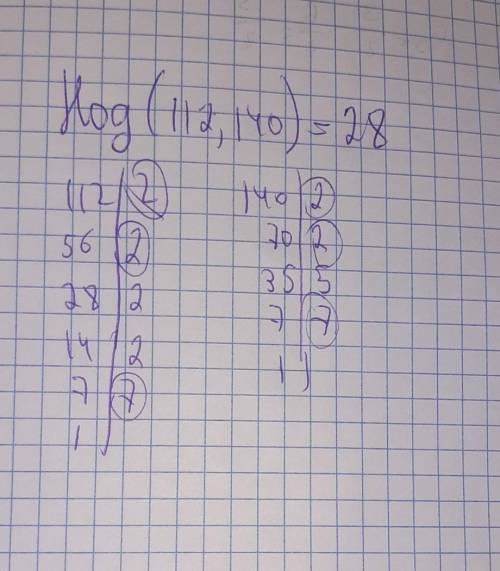 Нод(112,140)=28
112|2 140|2
56|2 70|2
28|2 35|5
14|2 7|7
7|7 1|
1|